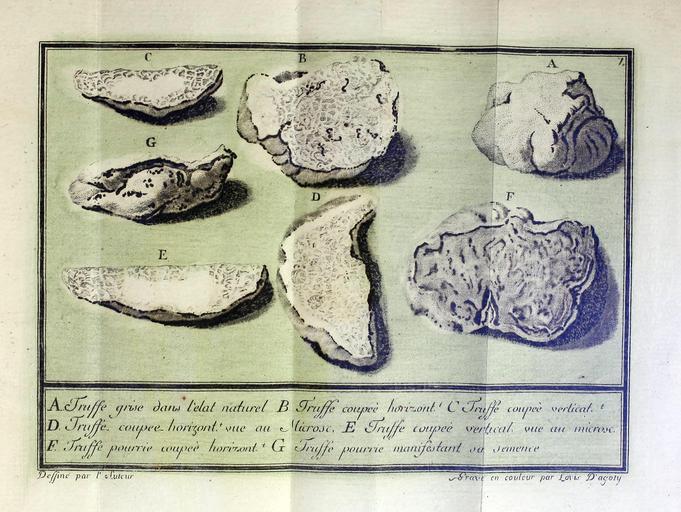 C B A
G
D F
E
A Truffe grise dans l'etat naturel B Truffe coupeè horizont.t C Truffe coupeè vertical.t
D Truffe. coupee horizont.t vue au Microsc. E Truffe coupeè vertical. vue au microsc.
F Truffe pourrie coupeè horizont.t G Truffe pourrie manifestant sa semence
Dessiné par l'Auteur
Gravé en couleur par Lovis D'agoty